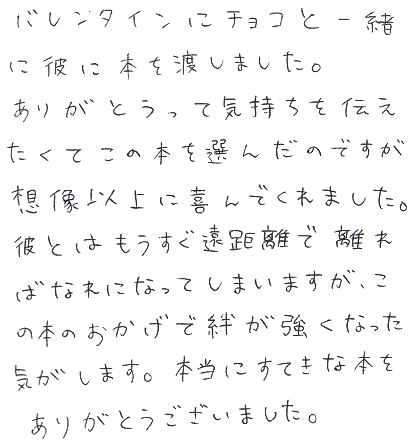 バレンタインにチョコと一緒
に彼に本を渡しました。
ありがとうって気持ちを伝え
たくてこの本を選んだのですが
想像以上に喜んでくれました。
彼とはもうすぐ遠距離で離れ
ばなれになってしまいますが、こ
の本のおかげで絆が強くなった
気がします。本当にすてきな本を
ありがとうございました。